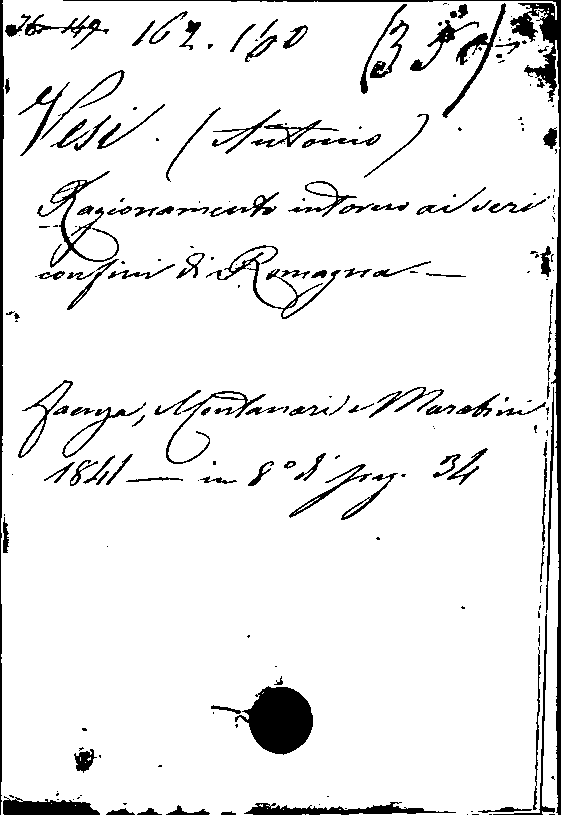 76-149. 162.160 (350)
Vesi. (Antonio)
Ragionamento intorno ai veri
confini di Romagna —
Faenza, Montanari e Marabini
1841 — in 8° di pag. 34